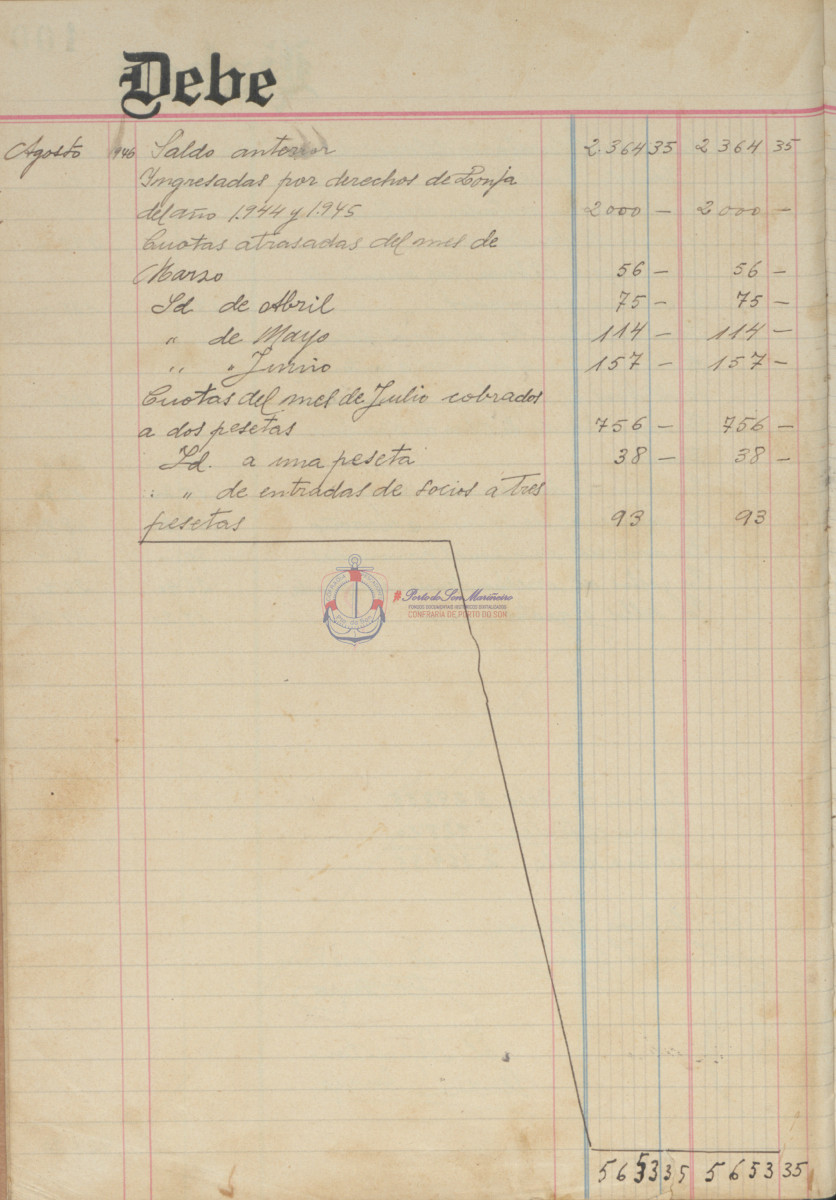 Debe
Agosto 946 Saldo anterior 2.364 35 2 364 35
Ingresadas por derechos de Lonja
del año 1.944 y 1.945 2000 — 2000 —
Cuotas atrasadas del mes de
Marzo 56 — 56 —
Id. de Abril 75 — 75 —
" de Mayo 114 — 114 —
" " Junio 157 — 157 —
Cuotas del mes de Julio cobrados
a dos pesetas 756 — 756 —
Id. a una peseta 38 — 38 —
" de entradas de socios a tres
pesetas 93 93
#Porto do Son Mariñeiro
FONDOS DOCUMENTAIS HISTÓRICOS DIXITALIZADOS
CONFRARÍA DE PORTO DO SON
5653 35 5653 35